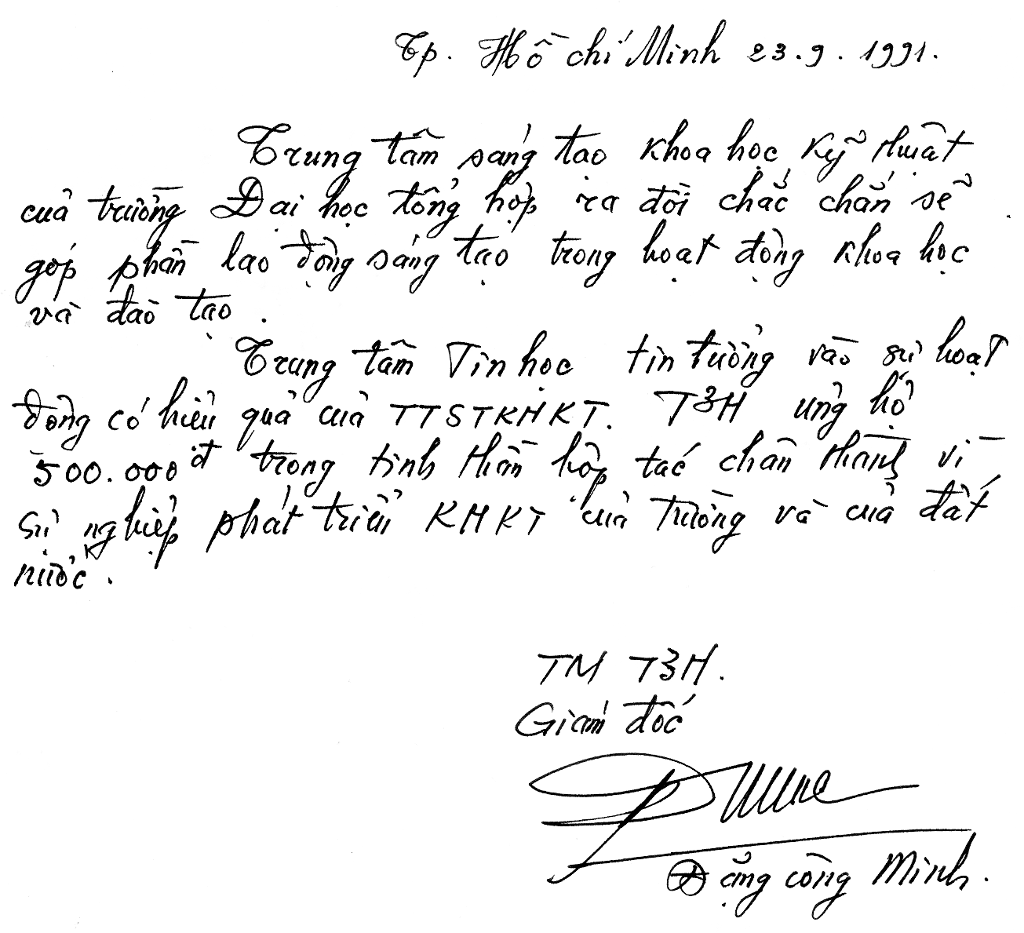 Tp. Hồ chí Minh 23.9.1991.
Trung tâm sáng tạo khoa học kỹ thuật
của trường Đại học tổng hợp ra đời chắc chắn sẽ
góp phần lao động sáng tạo trong hoạt động khoa học
và đào tạo.
Trung tâm Tin học tin tưởng vào sự hoạt
động có hiệu quả của TTSTKHKT. T3H ủng hộ
500.000đ trong tinh thần hợp tác chân thành vì
sự nghiệp phát triển KHKT của trường và của đất
nước.
TM T3H.
Giám đốc
Đặng công Minh.